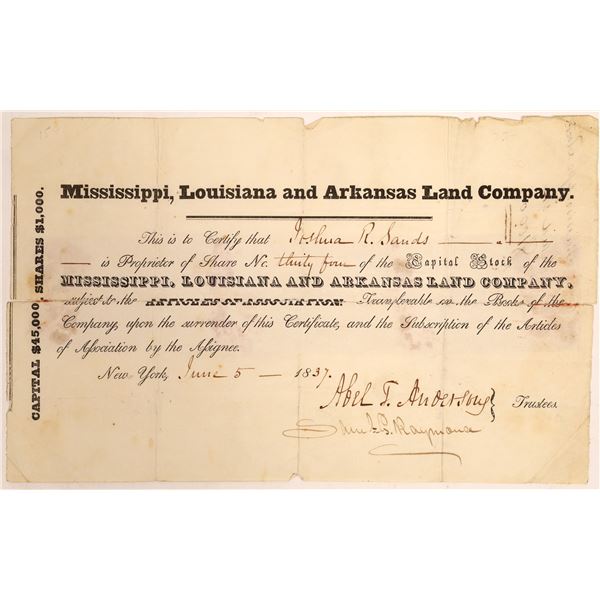 CAPITAL $45,000. SHARES $1,000.
Mississippi, Louisiana and Arkansas Land Company.
This is to Certify that Joshua R. Sands
is Proprietor of Share No. thirty four of the Capital Stock of the
MISSISSIPPI, LOUISIANA AND ARKANSAS LAND COMPANY,
subject to the ARTICLES OF ASSOCIATION. Transferable on the Books of the
Company, upon the surrender of this Certificate, and the Subscription of the Articles
of Association by the Assignee.
New York, June 5 1837.
Abel T. Anderson } Trustees.
Saml S. Raymond